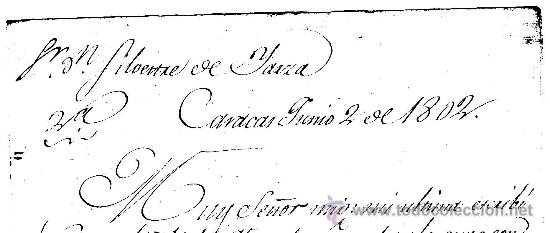 Sr. Dn. Silvestre de Yarza
2a
Caracas Junio 2 de 1802.
Muy Señor mio: mi ultima escribí
www.todocoleccion.net